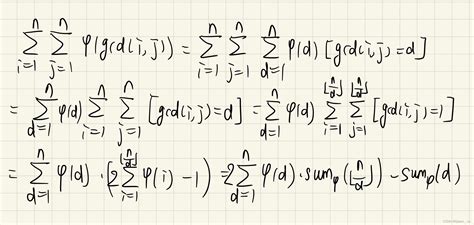 $\sum_{i=1}^{n} \sum_{j=1}^{n} \varphi(\gcd(i,j)) = \sum_{i=1}^{n} \sum_{j=1}^{n} \sum_{d=1}^{n} \varphi(d) [\gcd(i,j)=d]$
$= \sum_{d=1}^{n} \varphi(d) \sum_{i=1}^{n} \sum_{j=1}^{n} [\gcd(i,j)=d] = \sum_{d=1}^{n} \varphi(d) \sum_{i=1}^{\lfloor \frac{n}{d} \rfloor} \sum_{j=1}^{\lfloor \frac{n}{d} \rfloor} [\gcd(i,j)=1]$
$= \sum_{d=1}^{n} \varphi(d) \cdot (2 \sum_{i=1}^{\lfloor \frac{n}{d} \rfloor} \varphi(i) - 1) = 2 \sum_{d=1}^{n} \varphi(d) \cdot sum_{\varphi}(\lfloor \frac{n}{d} \rfloor) - sum_{\varphi}(d)$